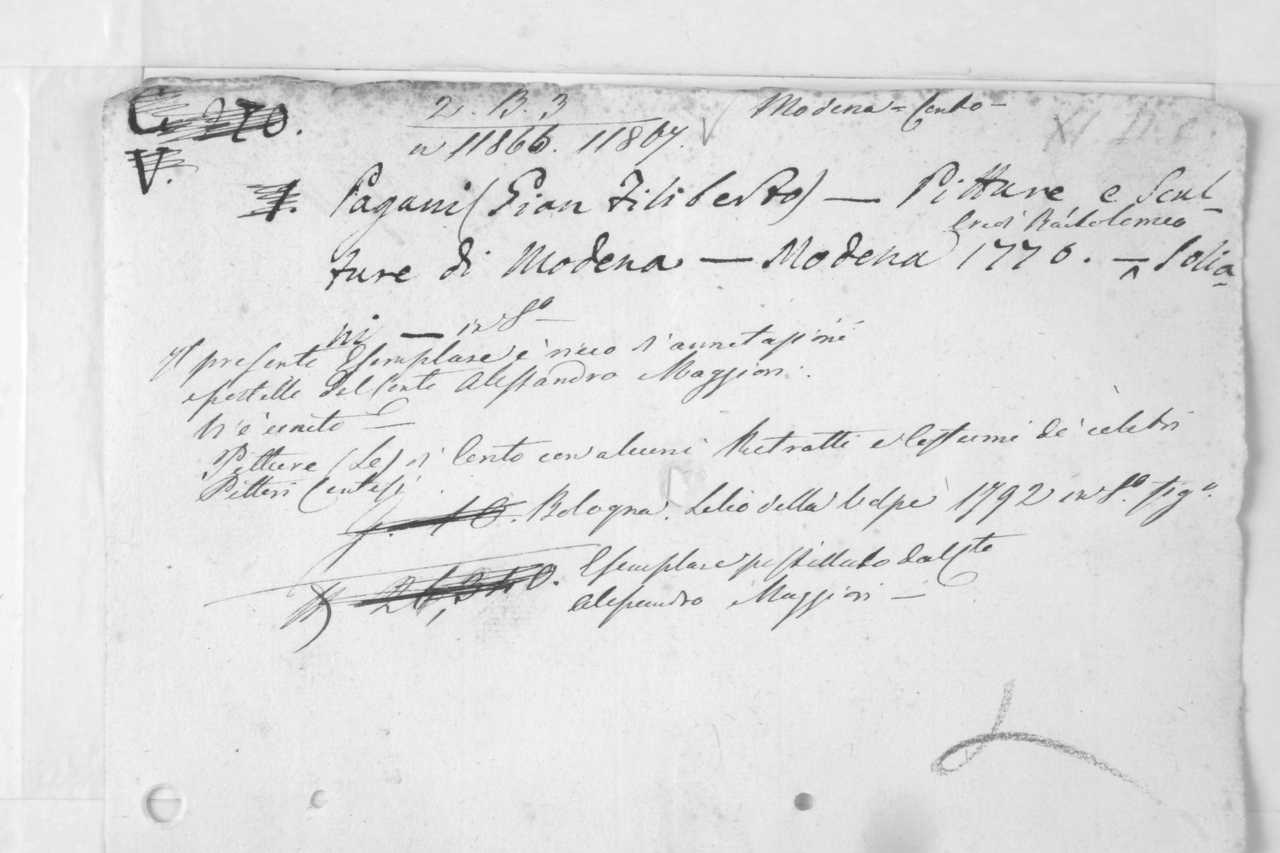 C. 270.
2. B. 3
Modena = Cento -
n 11866. 11867.
V.
1. Pagani (Gian Filiberto) — Pitture e Scul-
ture di Modena — Modena 1770. — Eredi Bartolomeo Solia-
ni — in 8º -
Il presente Esemplare è ricco d'annotazioni
e postille del Conte Alessandro Maggiori.
Vi è unito —
Pitture (Le) di Cento con alcuni Ritratti e Costumi de' celebri
Pittori Centesi.
Bologna. Lelio della Volpe 1792 in 8º. fig º.
Esemplare postillato dal Cte
Alessandro Maggiori —